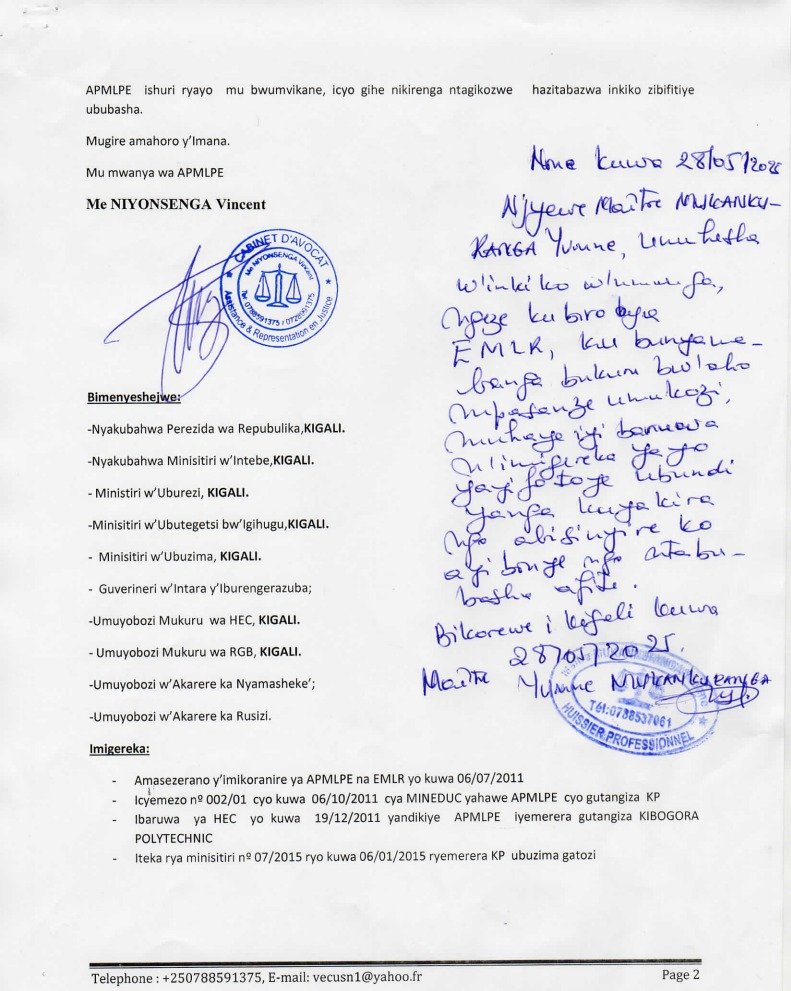 APMLPE ishuri ryayo mu bwumvikane, icyo gihe nikirenga ntagikozwe hazitabazwa inkiko zibifitiye
ububasha.
Mugire amahoro y’Imana.
Mu mwanya wa APMLPE
Me NIYONSENGA Vincent
CABINET D'AVOCAT
Me NIYONSENGA Vincent
Tel: 0788591375 / 0728591375
Assistance & Representation en Justice
Bimenyeshejwe:
-Nyakubahwa Perezida wa Repubulika,KIGALI.
-Nyakubahwa Minisitiri w’Intebe,KIGALI.
- Ministiri w’Uburezi, KIGALI.
-Minisitiri w’Ubutegetsi bw’Igihugu,KIGALI.
- Minisitiri w’Ubuzima, KIGALI.
- Guverineri w’Intara y’Iburengerazuba;
-Umuyobozi Mukuru wa HEC, KIGALI.
- Umuyobozi Mukuru wa RGB, KIGALI.
-Umuyobozi w’Akarere ka Nyamasheke’;
-Umuyobozi w’Akarere ka Rusizi.
None kuwa 28/05/2025
Njyewe Maître MUKANKU-
RANGA Yvonne, Umuhesha
w'inkiko w'umwuga,
ngeze ku biro bya
EMLR, ku bunyama-
banga bukuru bw'aho
mpasanze umukozi,
muhaye iyi baruwa
n'imigereka yayo
yayifotoye ubundi
yanga kuyakira
ngo abisinyire ko
ayibonye ngo ntabu-
basha afite.
Bikorewe i Kigali kuwa
28/05/2025.
Maître Yvonne MUKANKURANGA
Tél:0788537061
HUISSIER PROFESSIONNEL
Imigereka:
- Amasezerano y’imikoranire ya APMLPE na EMLR yo kuwa 06/07/2011
- Icyemezo nº 002/01 cyo kuwa 06/10/2011 cya MINEDUC yahawe APMLPE cyo gutangiza KP
- Ibaruwa ya HEC yo kuwa 19/12/2011 yandikiye APMLPE iyemerera gutangiza KIBOGORA
POLYTECHNIC
- Iteka rya minisitiri nº 07/2015 ryo kuwa 06/01/2015 ryemerera KP ubuzima gatozi
Telephone : +250788591375, E-mail: vecusn1@yahoo.fr Page 2